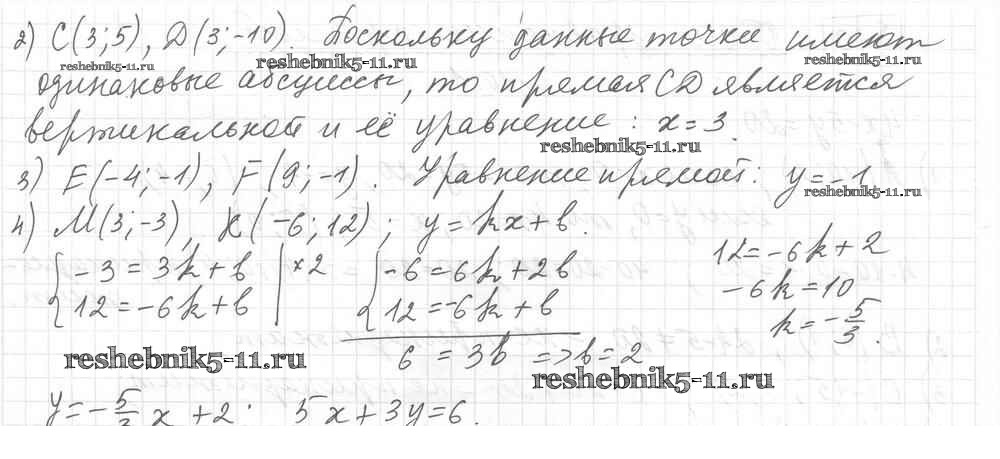 2) C(3;5), D(3;-10). Поскольку данные точки имеют
reshebnik5-11.ru reshebnik5-11.ru reshebnik5-11.ru
одинаковые абсциссы, то прямая CD является
вертикальной и её уравнение: x=3.
reshebnik5-11.ru
3) E(-4;-1), F(9;-1). Уравнение прямой: y=-1.
reshebnik5-11.ru
4) M(3;-3), K(-6;12); y=kx+b.
{ -3=3k+b | ×2 { -6=6k+2b
12=-6k+b 12=-6k+b
6=3b => b=2
12=-6k+2
-6k=10
k=-5/3.
reshebnik5-11.ru
reshebnik5-11.ru
y=-5/3 x+2; 5x+3y=6.